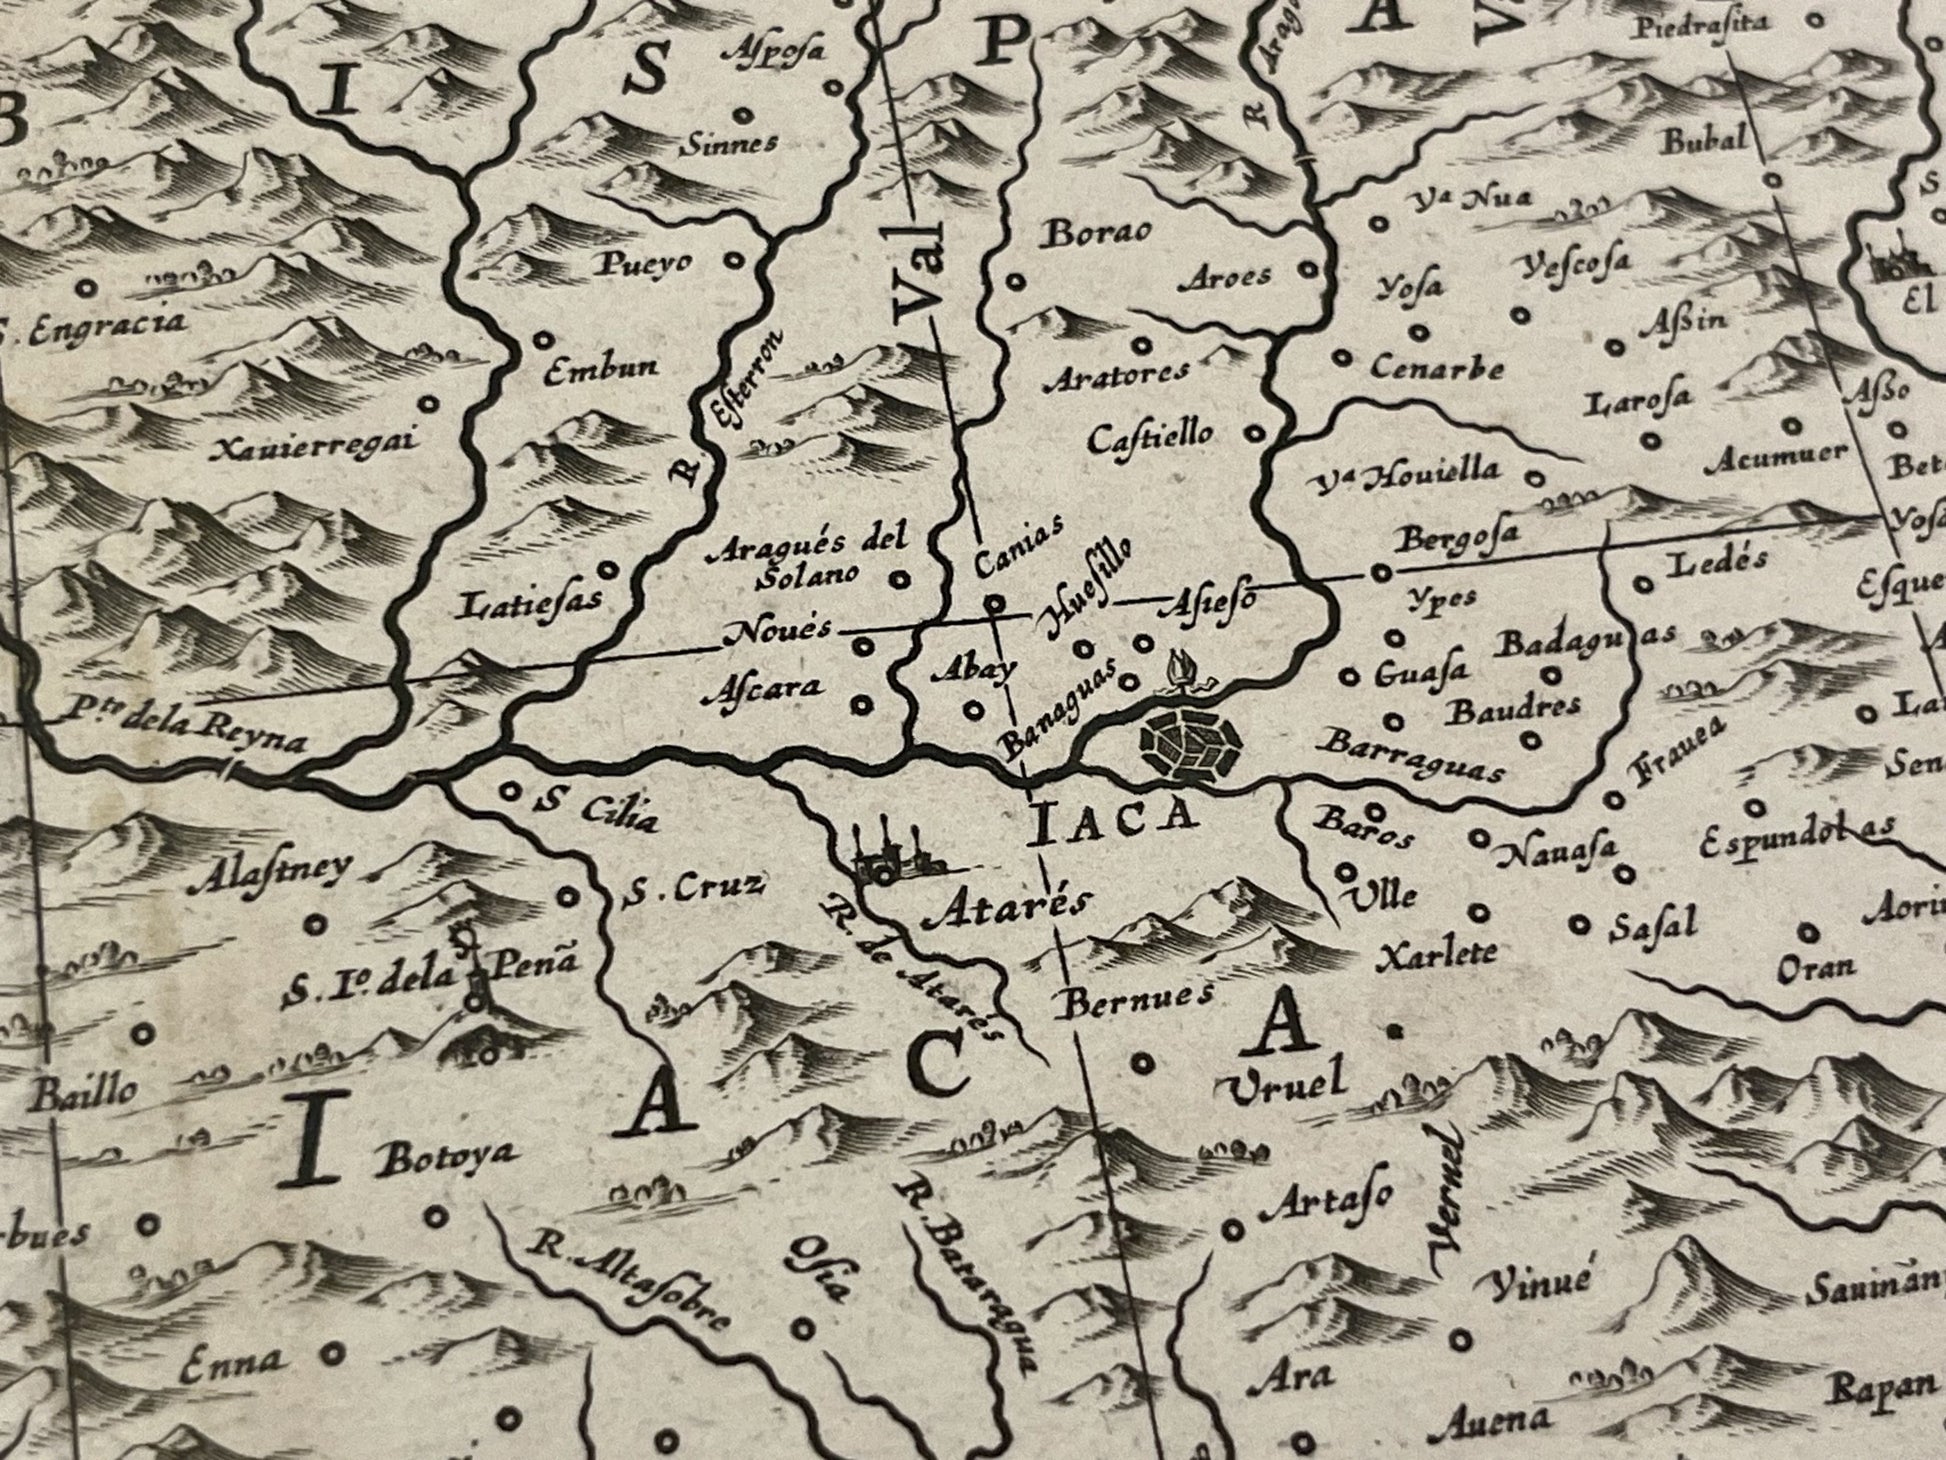 B
I
S
P
A
Aſpoſa
Piedraſita
Sinnes
R
Bubal
Val
Yª Nua
S
Borao
Pueyo
Aroes
Yoſa
Yeſcoſa
El
S. Engracia
Aßin
Embun
Eſterron
R
Aratores
Cenarbe
Laroſa
Aßo
Xauierregai
Caſtiello
Acumuer
Yª Houiella
Bergoſa
Ledés
Aragués del
Solano
Canias
Hueſillo
Latieſas
Aſieſo
Ypes
Noués
Badaguas
Abay
Guaſa
Aſcara
Banaguas
Baudres
Pᵗᵉ dela Reyna
Barraguas
Frauea
S Cilia
IACA
Baros
Nauaſa
Espundolas
Alaſtney
S. Cruz
Atarés
Ulle
Saſal
R. de Atarés
Xarlete
Oran
S. Iº. dela Penã
Bernues
Baillo
I A C A
Uruel
Botoya
Vernel
R. Bataragua
Artaſo
R. Altaſobre
Oſia
Yinué
Enna
Ara
Rapan
Auena